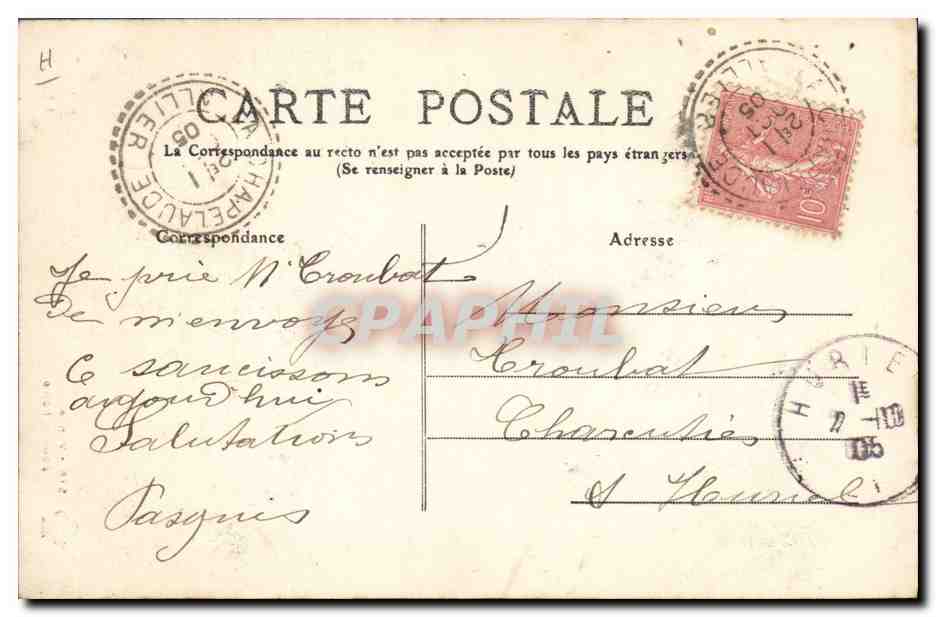 H
CARTE POSTALE
La Correspondance au recto n'est pas acceptée par tous les pays étrangers
(Se renseigner à la Poste)
LA CHAPELAUDE
ALLIER
05
Correspondance
Je prie Mr Troubat
de m'envoyer
6 saucissons
aujourd'hui
Salutations
Adresse
Monsieur
Troubat
Charcutier
à Huriel
10
HURIE
1E
05
CPAPHIL